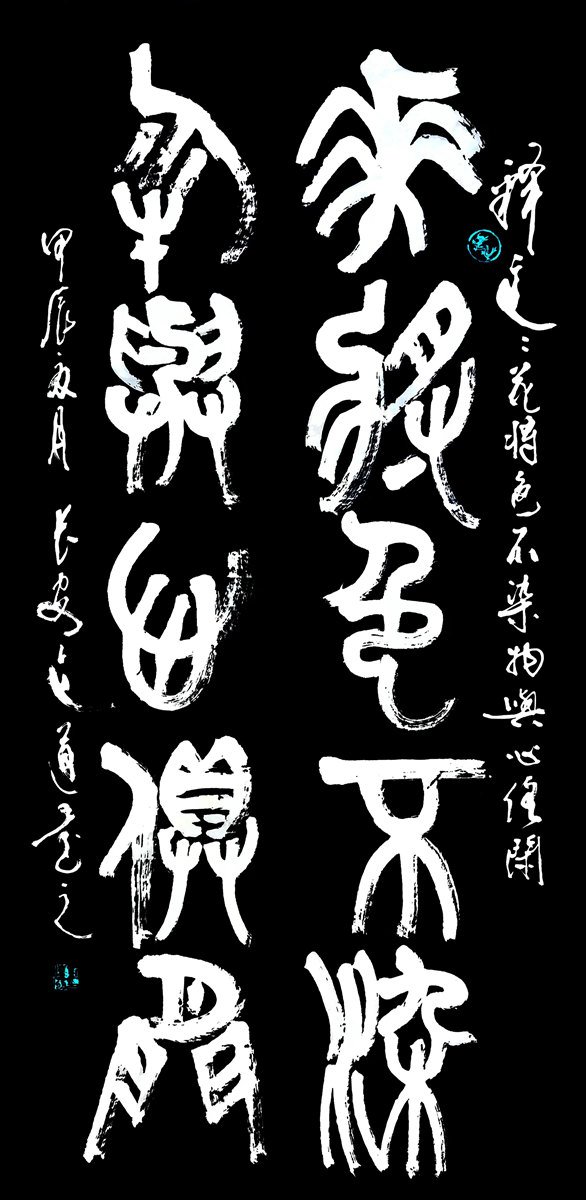 釋 花將色不染物與心俱閑
花將色不染
物與心俱閒
甲辰夏月 長安 道 之